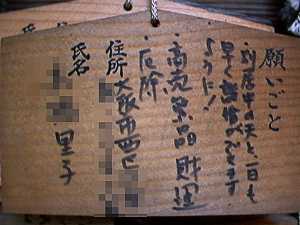 願いごと
・別居中の夫と一日も
早く離婚ができます
ように!
・商売繁昌 財運
・厄除
住所 大阪市西区
氏名 里子